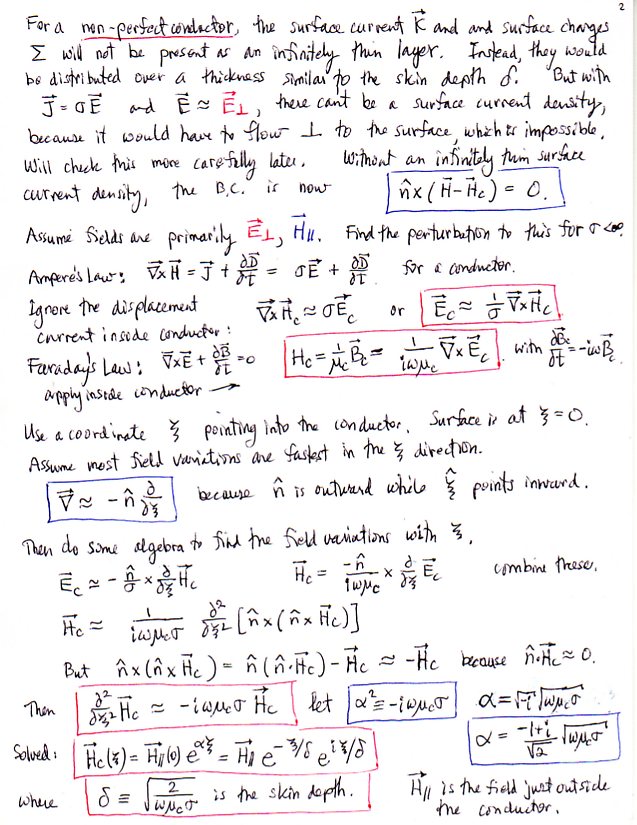 2
For a non-perfect conductor, the surface current K⃗ and and surface charges
Σ will not be present as an infinitely thin layer. Instead, they would
be distributed over a thickness similar to the skin depth δ. But with
J⃗ = σE⃗ and E⃗ ≈ E⃗⊥, there can't be a surface current density,
because it would have to flow ⊥ to the surface, which is impossible.
Will check this more carefully later. Without an infinitely thin surface
current density, the B.C. is now n̂×(H⃗−H⃗c) = 0.
Assume fields are primarily E⃗⊥, H⃗∥. Find the perturbation to this for σ<∞.
Ampere's Law: ∇⃗×H⃗ = J⃗ + ∂D⃗/∂t = σE⃗ + ∂D⃗/∂t for a conductor.
Ignore the displacement ∇⃗×H⃗c ≈ σE⃗c or E⃗c ≈ 1/σ ∇⃗×H⃗c
current inside conductor:
Faraday's Law: ∇⃗×E⃗ + ∂B⃗/∂t = 0 Hc = 1/μc B⃗c = 1/(iωμc) ∇⃗×E⃗c. with ∂B⃗c/∂t = −iωB⃗c
apply inside conductor →
Use a coordinate ξ pointing into the conductor. Surface is at ξ = 0.
Assume most field variations are fastest in the ξ direction.
∇⃗ ≈ −n̂ ∂/∂ξ because n̂ is outward while ξ̂ points inward.
Then do some algebra to find the field variations with ξ.
E⃗c ≃ −n̂/σ × ∂/∂ξ H⃗c H⃗c = −n̂/(iωμc) × ∂/∂ξ E⃗c combine these.
H⃗c ≈ 1/(iωμcσ) ∂²/∂ξ² [n̂×(n̂×H⃗c)]
But n̂×(n̂×H⃗c) = n̂(n̂·H⃗c) − H⃗c ≈ −H⃗c because n̂·H⃗c ≈ 0.
Then ∂²/∂ξ² H⃗c ≈ −iωμcσ H⃗c let α² ≡ −iωμcσ α = √−i √ωμcσ
α = (−1+i)/√2 √ωμcσ
Solved: H⃗c(ξ) = H⃗∥(0) e^αξ = H⃗∥ e^−ξ/δ e^iξ/δ
where δ ≡ √(2/(ωμcσ)) is the skin depth. H⃗∥ is the field just outside
the conductor.